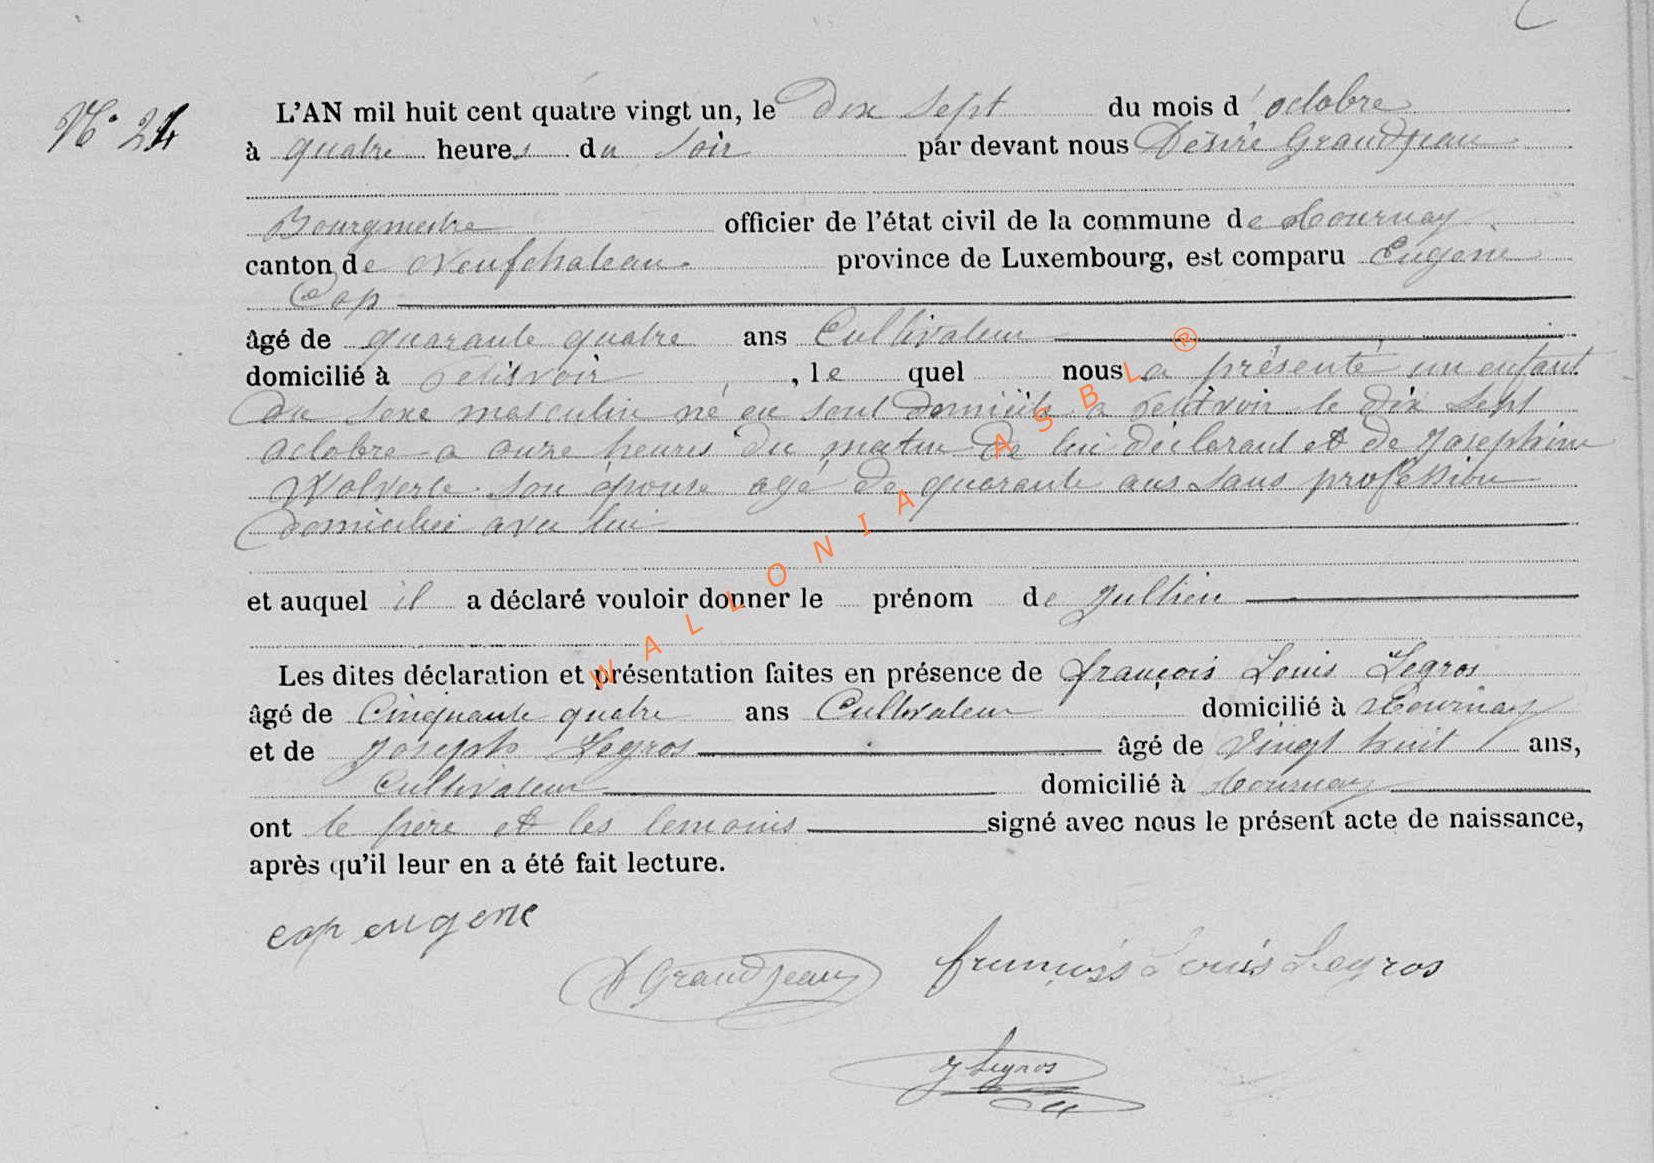 N° 24
L'AN mil huit cent quatre vingt un, le dix sept du mois d'octobre
à quatre heures du soir par devant nous Désiré Grandjean
Bourgmestre officier de l'état civil de la commune de Tournay
canton de Neufchateau. province de Luxembourg, est comparu Eugène
Cop
âgé de quarante quatre ans Cultivateur
domicilié à Petitvoir, le quel nous a présenté un enfant
du sexe masculin né en sont domicile a Petitvoir le dix sept
octobre a onze heures du matin de lui déclarant et de Josephine
Wolverte son épouse agé de quarante ans sans profession
domiciliée avec lui
et auquel il a déclaré vouloir donner le prénom de Jullien
Les dites déclaration et présentation faites en présence de françois Louis Legros
âgé de Cinquante quatre ans Cultivateur domicilié à Tournay
et de Joseph Legros âgé de Vingt huit ans,
Cultivateur domicilié à Tournay
ont le père et les temoins signé avec nous le présent acte de naissance,
après qu'il leur en a été fait lecture.
cop eugene
D Grandjean
françois Louis Legros
J Legros
WALLONIA ASBL ®